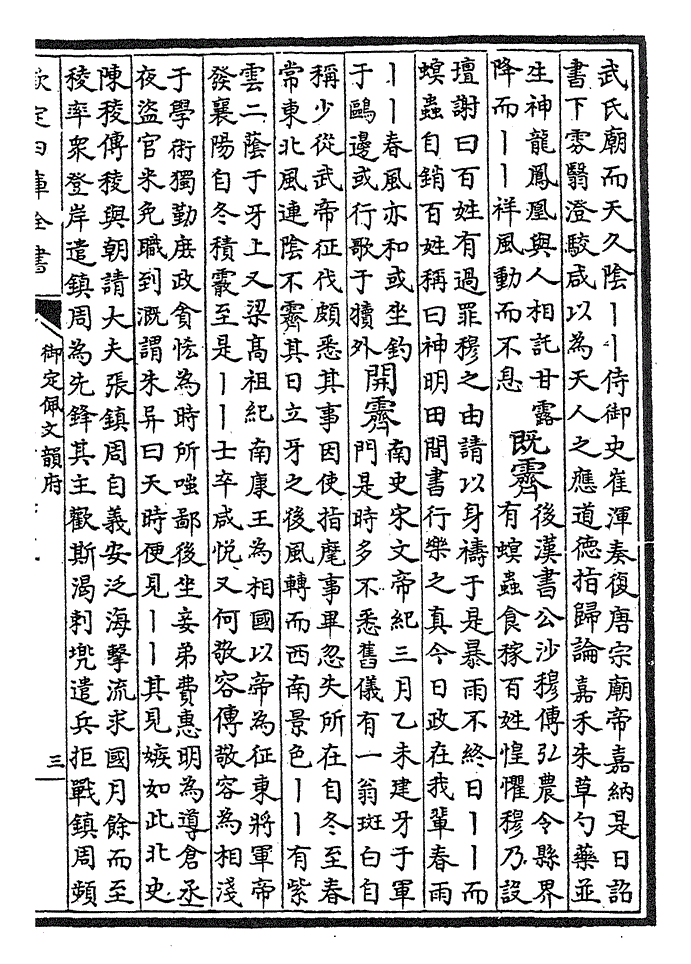 武氏廟而天久陰丨丨侍御史崔渾奏復唐宗廟帝嘉納是日詔
書下雰翳澄駮咸以為天人之應道德指歸論嘉禾朱草勺藥並
生神龍鳳凰與人相託甘露
降而丨丨祥風動而不息
既霽
後漢書公沙穆傳弘農令縣界
有螟蟲食稼百姓惶懼穆乃設
壇謝曰百姓有過罪穆之由請以身禱于是暴雨不終日丨丨而
螟蟲自銷百姓稱曰神明田間書行樂之真今日政在我輩春雨
丨丨春風亦和或坐釣
于鷗邊或行歌于犢外
開霽
南史宋文帝紀三月乙未建牙于軍
門是時多不悉舊儀有一翁斑白自
稱少從武帝征伐頗悉其事因使指麾事畢忽失所在自冬至春
常東北風連陰不霽其日立牙之後風轉而西南景色丨丨有紫
雲二蔭于牙上又梁高祖紀南康王為相國以帝為征東將軍帝
發襄陽自冬積霰至是丨丨士卒咸悅又何敬容傳敬容為相淺
于學術獨勤庶政貪恡為時所嗤鄙後坐妾弟費惠明為導倉丞
夜盜官米免職到溉謂朱异曰天時便見丨丨其見嫉如此北史
陳稜傳稜與朝請大夫張鎮周自義安泛海擊流求國月餘而至
稜率衆登岸遣鎮周為先鋒其主歡斯渴剌兜遣兵拒戰鎮周頻
欽定四庫全書
御定佩文韻府
三